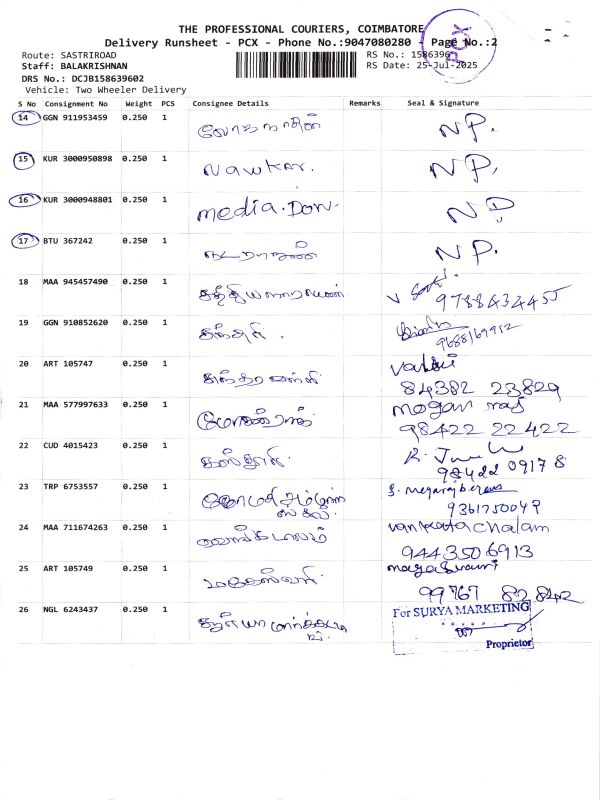 THE PROFESSIONAL COURIERS, COIMBATORE
Delivery Runsheet - PCX - Phone No.:9047080280 - Page No.:2
PCX
Route: SASTRIROAD
RS No.: 1586396
Staff: BALAKRISHNAN
RS Date: 25-Jul-2025
DRS No.: DCJB158639602
Vehicle: Two Wheeler Delivery
S No Consignment No Weight PCS Consignee Details Remarks Seal & Signature
14 GGN 911953459 0.250 1 லோகநாதன் NP.
15 KUR 3000950898 0.250 1 Nawkar. NP.
16 KUR 3000948801 0.250 1 media.Don. NP
17 BTU 367242 0.250 1 நடராஜன் NP.
18 MAA 945457490 0.250 1 சத்தியநாராயணன்
9788434455
19 GGN 910852620 0.250 1
9688169912
20 ART 105747 0.250 1 சுந்தரவள்ளி valli
84382 23829
21 MAA 577997633 0.250 1 மோகன்ராஜ் mogan raj
98422 22422
22 CUD 4015423 0.250 1 கஸ்தூரி.
98422 09178
23 TRP 6753557 0.250 1
ஸ்கூல்.
9361750049
24 MAA 711674263 0.250 1 வெங்கடாசலம் vankatachalam
9443506913
25 ART 105749 0.250 1 மகேஸ்வரி.
99767 82842
26 NGL 6243437 0.250 1 சூர்யா மார்க்கெட்டி
ங்.
For SURYA MARKETING
Proprietor